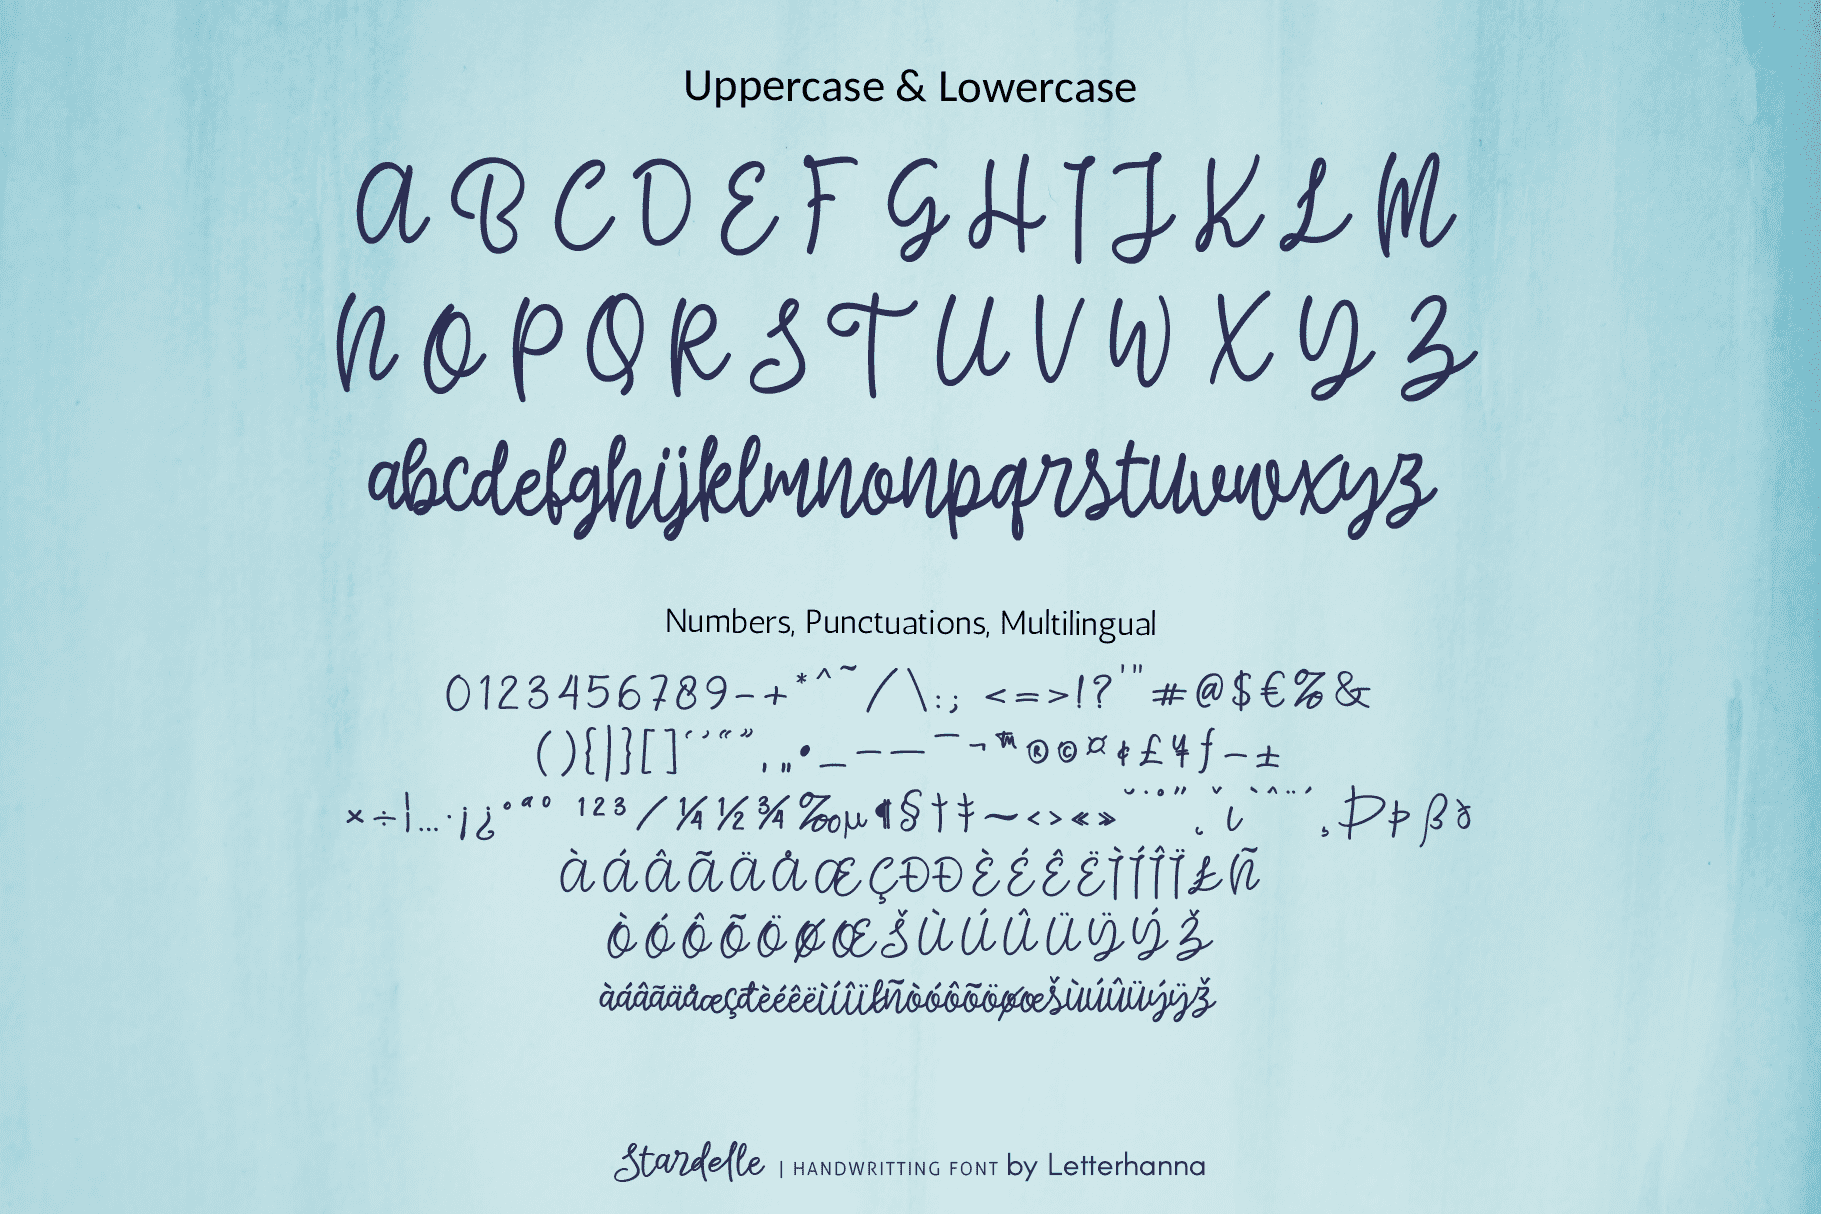 Uppercase & Lowercase
A B C D E F G H I J K L M
N O P Q R S T U V W X Y Z
abcdefghijklmnonpqrstuvwxyz
Numbers, Punctuations, Multilingual
0123456789-+*^~/\:; <=>!?'"#@$€%&
(){|}[]‘’“”‚„•_–—¯¬™®©¤¢£¥ƒ−±
×÷¦…·¡¿°ªº ¹²³⁄¼½¾‰µ¶§†‡~‹›«»˘˙˚˝˛ˇı`^¨´¸Þþßð
ÀÁÂÃÄÅÆÇĐÐÈÉÊËÌÍÎÏŁÑ
ÒÓÔÕÖØŒŠÙÚÛÜŸÝŽ
àáâãäåæçđèéêëìíîïłñòóôõöøœšùúûüýÿž
Stardelle | HANDWRITTING FONT by Letterhanna